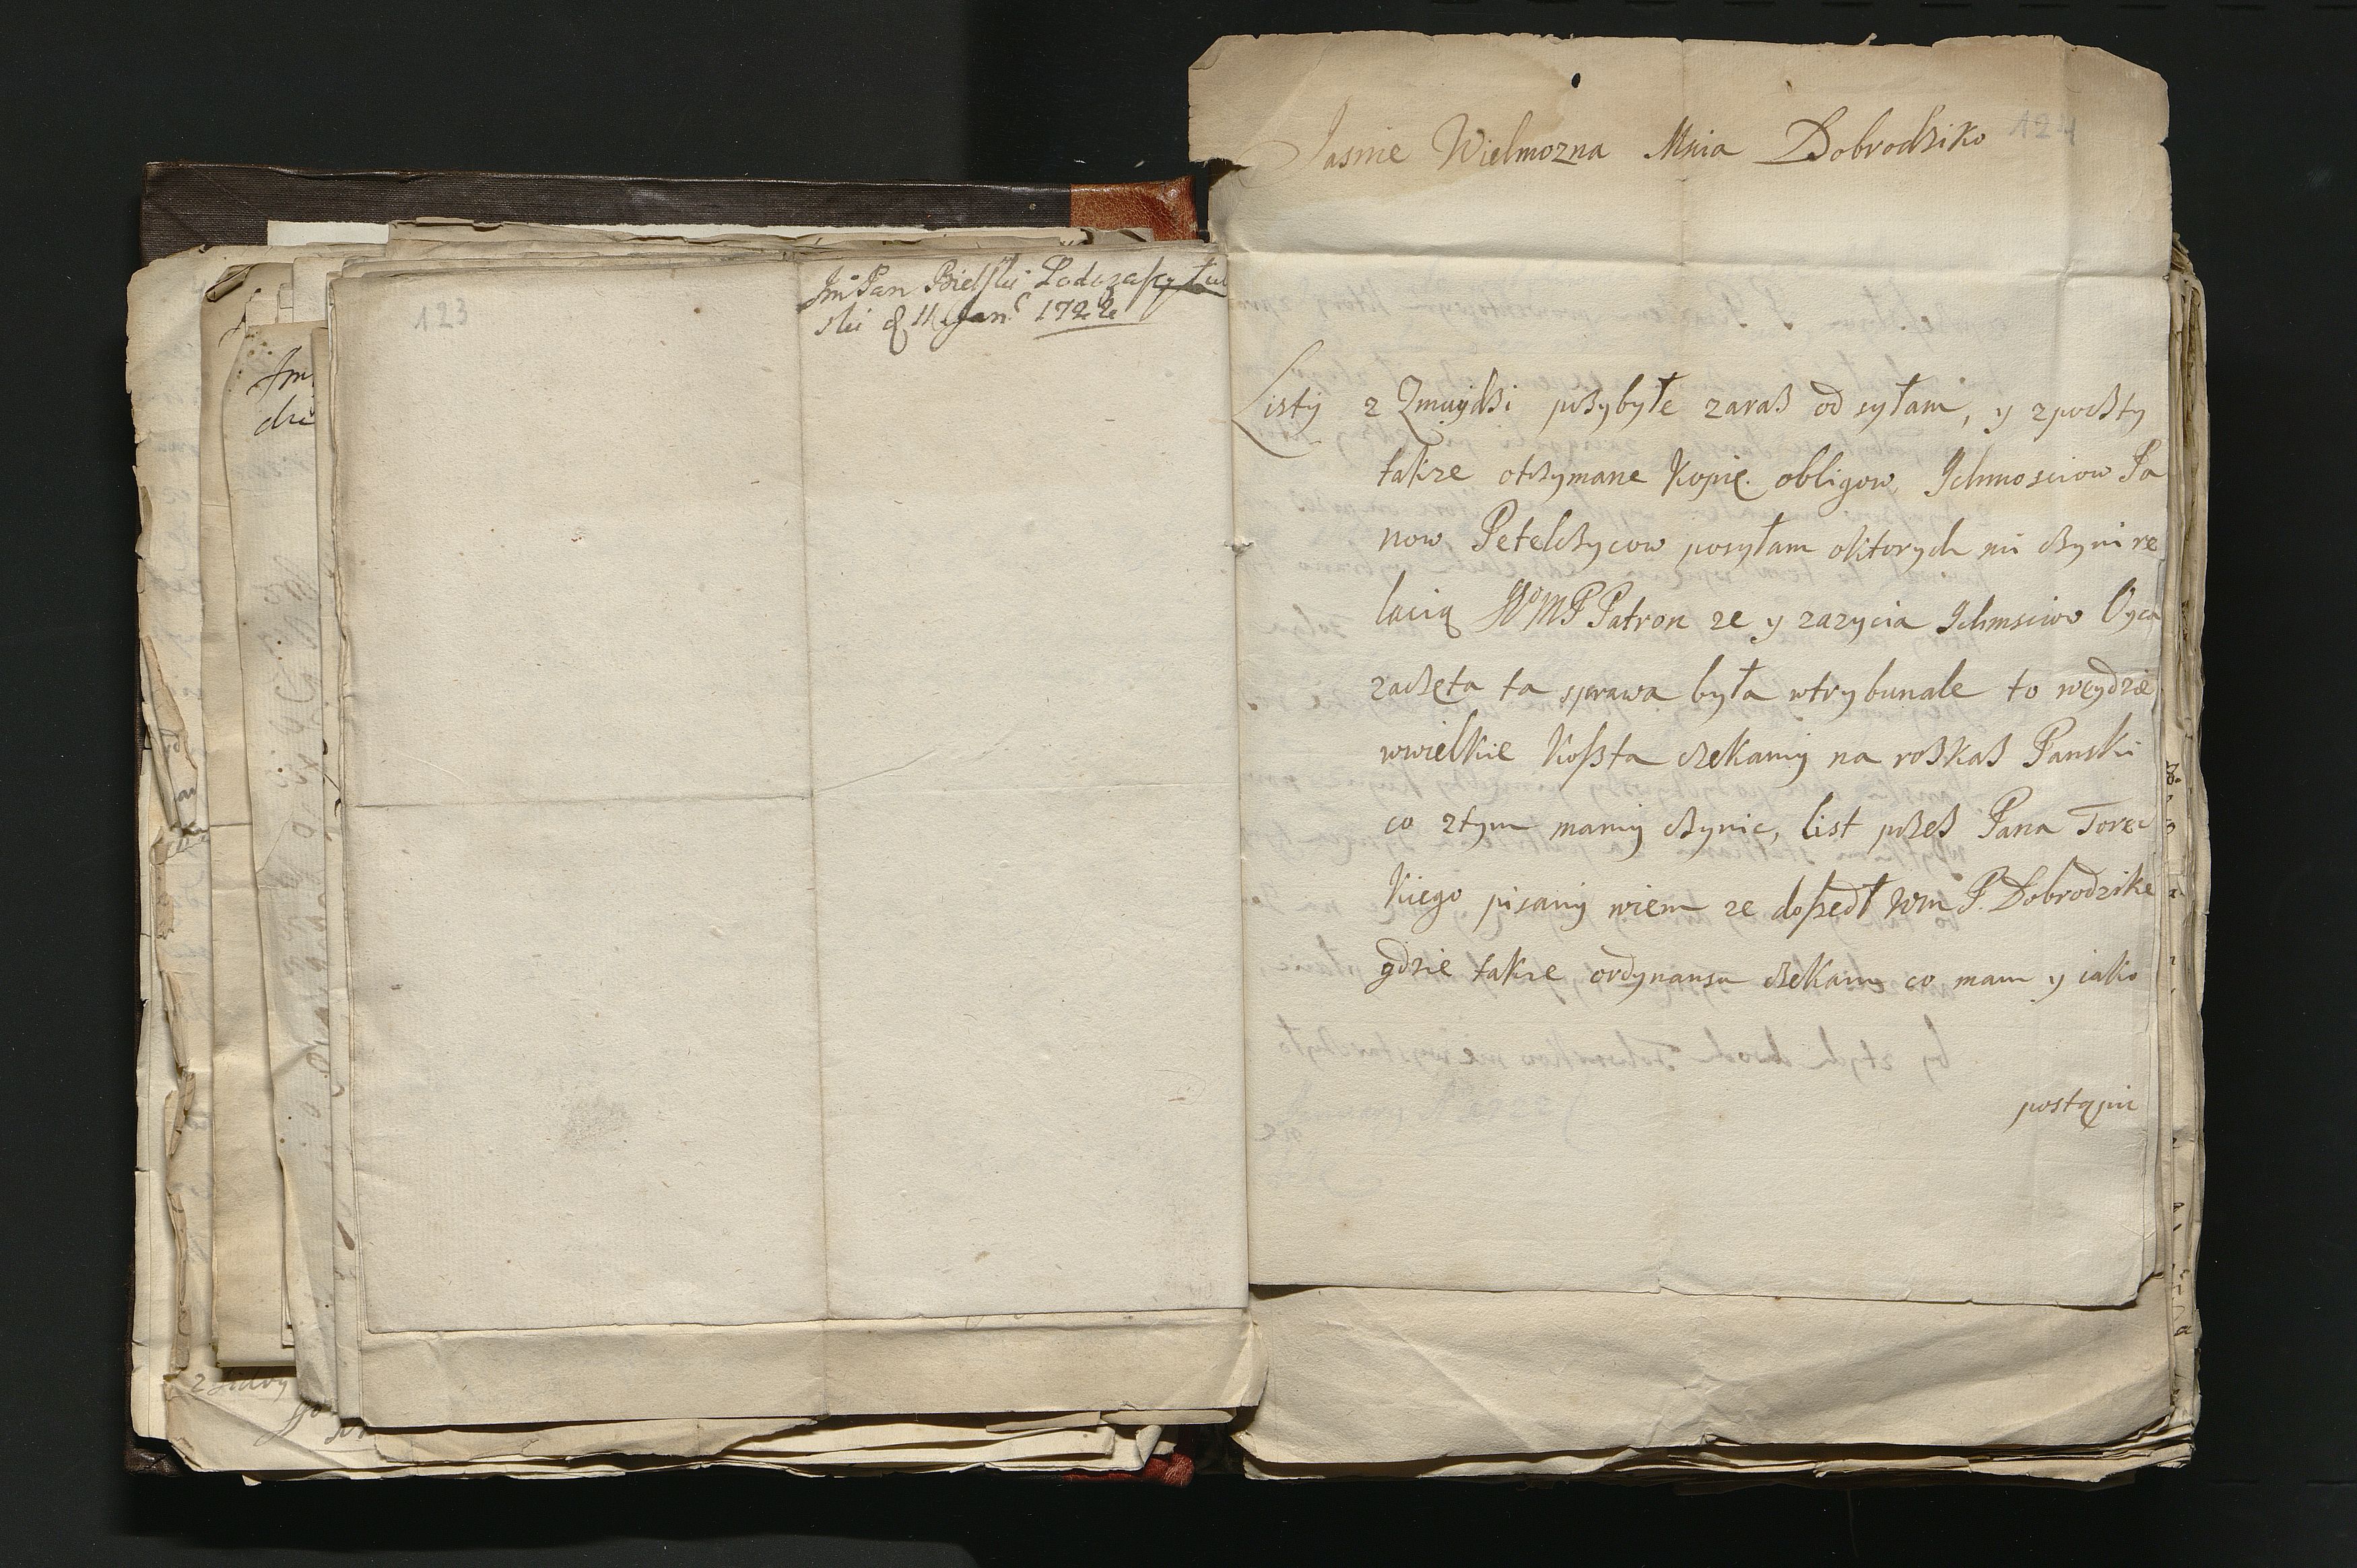 123
Jmº Pan Bielski Podczaszy
ski d 11 Jan 1722
124
Jasnie Wielmozna Mnia Dobrodziko
Listy z Zmuydzi pszybyłe zarasz od syłam, y zposzty
takze otszymane Kopię obligow Ichmosciow Pa
now Petelczycow posyłam oktorych mi czyni re
lacią JMP Patron ze y zazycia Ichmsciow Oyca
zaczęta ta sprawa była wtrybunale to weydzie
wwielkie koszta czekamy na roskasz Panski
co ztym mamy czynic, list pszesz Pana Torec
kiego pisany wiem ze doszedł wm P. Dobrodzike
gdzie takze ordynansu czekam co mam y iako
postąpic